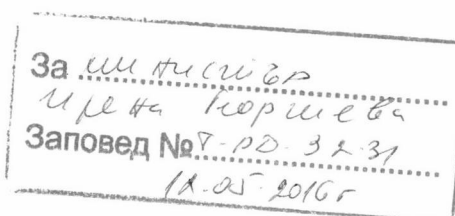 За министър
Ирена
Заповед № Т-РД-32-31
12.05.2016 г